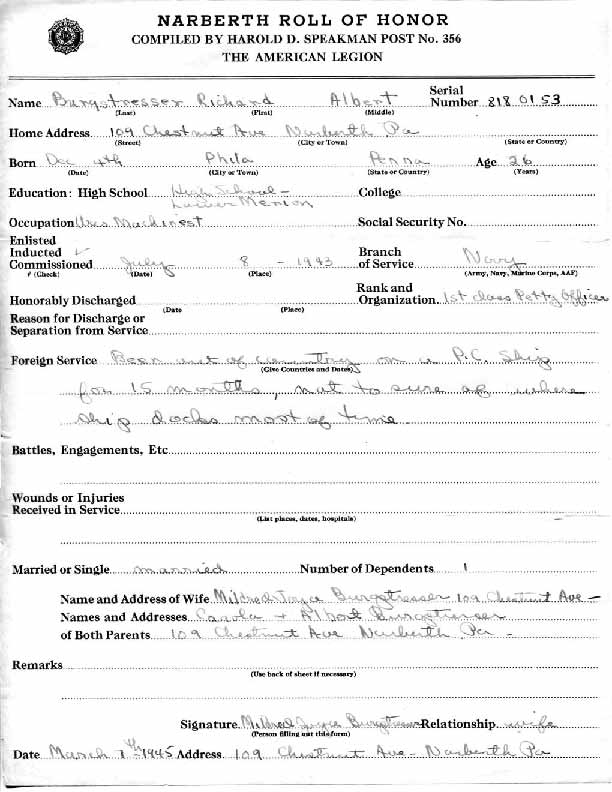 NARBERTH ROLL OF HONOR
COMPILED BY HAROLD D. SPEAKMAN POST No. 356
THE AMERICAN LEGION
Name Burgstresser Richard Albert Serial Number 818 01 53
(Last) (First) (Middle)
Home Address 109 Chestnut Ave Narberth Pa
(Street) (City or Town) (State or Country)
Born Dec 4th Phila Penna Age 26
(Date) (City or Town) (State or Country) (Years)
Education: High School High School - College
Lower Merion
Occupation Machinest Social Security No.
Enlisted
Inducted ✓ Branch
Commissioned July 8 - 1943 of Service Navy
(Check) (Date) (Place) (Army, Navy, Marine Corps, AAF)
Rank and
Honorably Discharged Organization 1st class Petty Officer
(Date (Place)
Reason for Discharge or
Separation from Service
Foreign Service Been out of country on a P.C. Ship
(Give Countries and Dates)
for 15 months, not to sure of where
ship docks most of time
Battles, Engagements, Etc
Wounds or Injuries
Received in Service
(List places, dates, hospitals)
Married or Single married Number of Dependents 1
Name and Address of Wife Mildred Joyce Burgstresser 109 Chestnut Ave -
Names and Addresses + Albert Burgstresser
of Both Parents 109 Chestnut Ave Narberth Pa -
Remarks
(Use back of sheet if necessary)
Signature Mildred Joyce Burgstresser Relationship wife
(Person filling out this form)
Date March 7th 1945 Address 109 Chestnut Ave - Narberth Pa